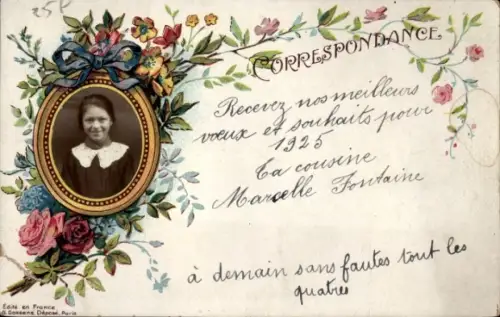 25f
CORRESPONDANCE
Recevez nos meilleurs
vœux et souhaits pour
1925
Ta cousine
Marcelle Fontaine
à demain sans fautes tout les
quatres
Edité en France
Déposé, Paris